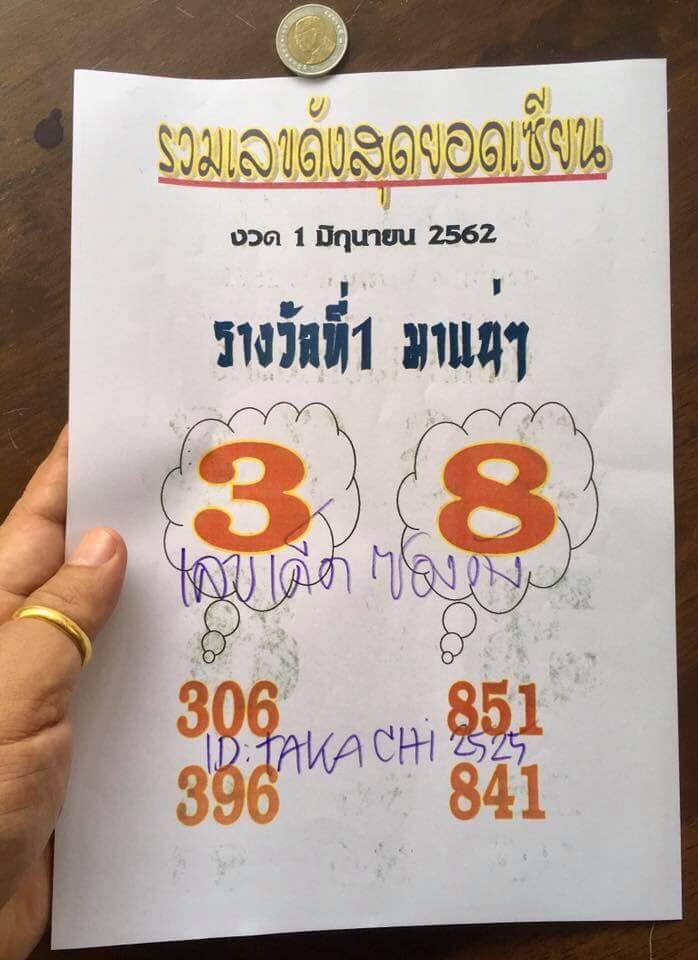 รวมเลขดังสุดยอดเซียน
งวด 1 มิถุนายน 2562
รางวัลที่1 มาแน่ๆ
3 8
เลขเด็ด ซองดัง
306 851
I.D: TAKACHi 2525
396 841